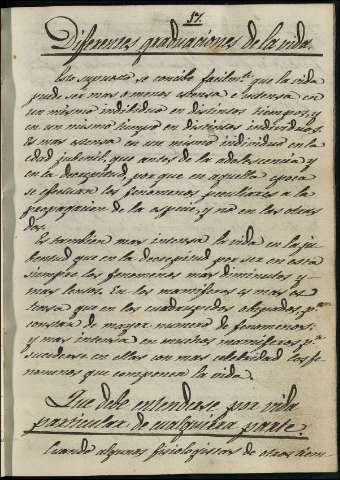 57.
Diferentes graduaciones de la vida.
Esto supuesto se concibe facilm.te que la vida
pude ser mas o menos estensa e intensa en
un mismo individuo en distintos tiempos, y
en un mismo tiempo en distintos individuos.
Es mas estensa en un mismo individuo en la
edad jubenil, que antes de la adolescencia y
en la decrepitud, por que en aquella epoca
se efectuan los fenomenos peculiares a la
propagacion de la especie, y no en las otras
dos.
Es tambien mas intensa la vida en la ju-
bentud que en la decrepitud por ser en esta
siempre los fenomenos mas diminutos y
mas lentos. En los mamiferos es mas es-
tensa que en los cuadrupedos obiparos, p.r
constar de mayor numero de fenomenos;
y mas intensa en muchos mamiferos p.r
sucederse en ellos con mas celebridad los fe-
nomenos que componen la vida.
Que debe entenderse por vida
particular de cualquiera parte.
Cuando algunos fisiologistas de otros tiem-